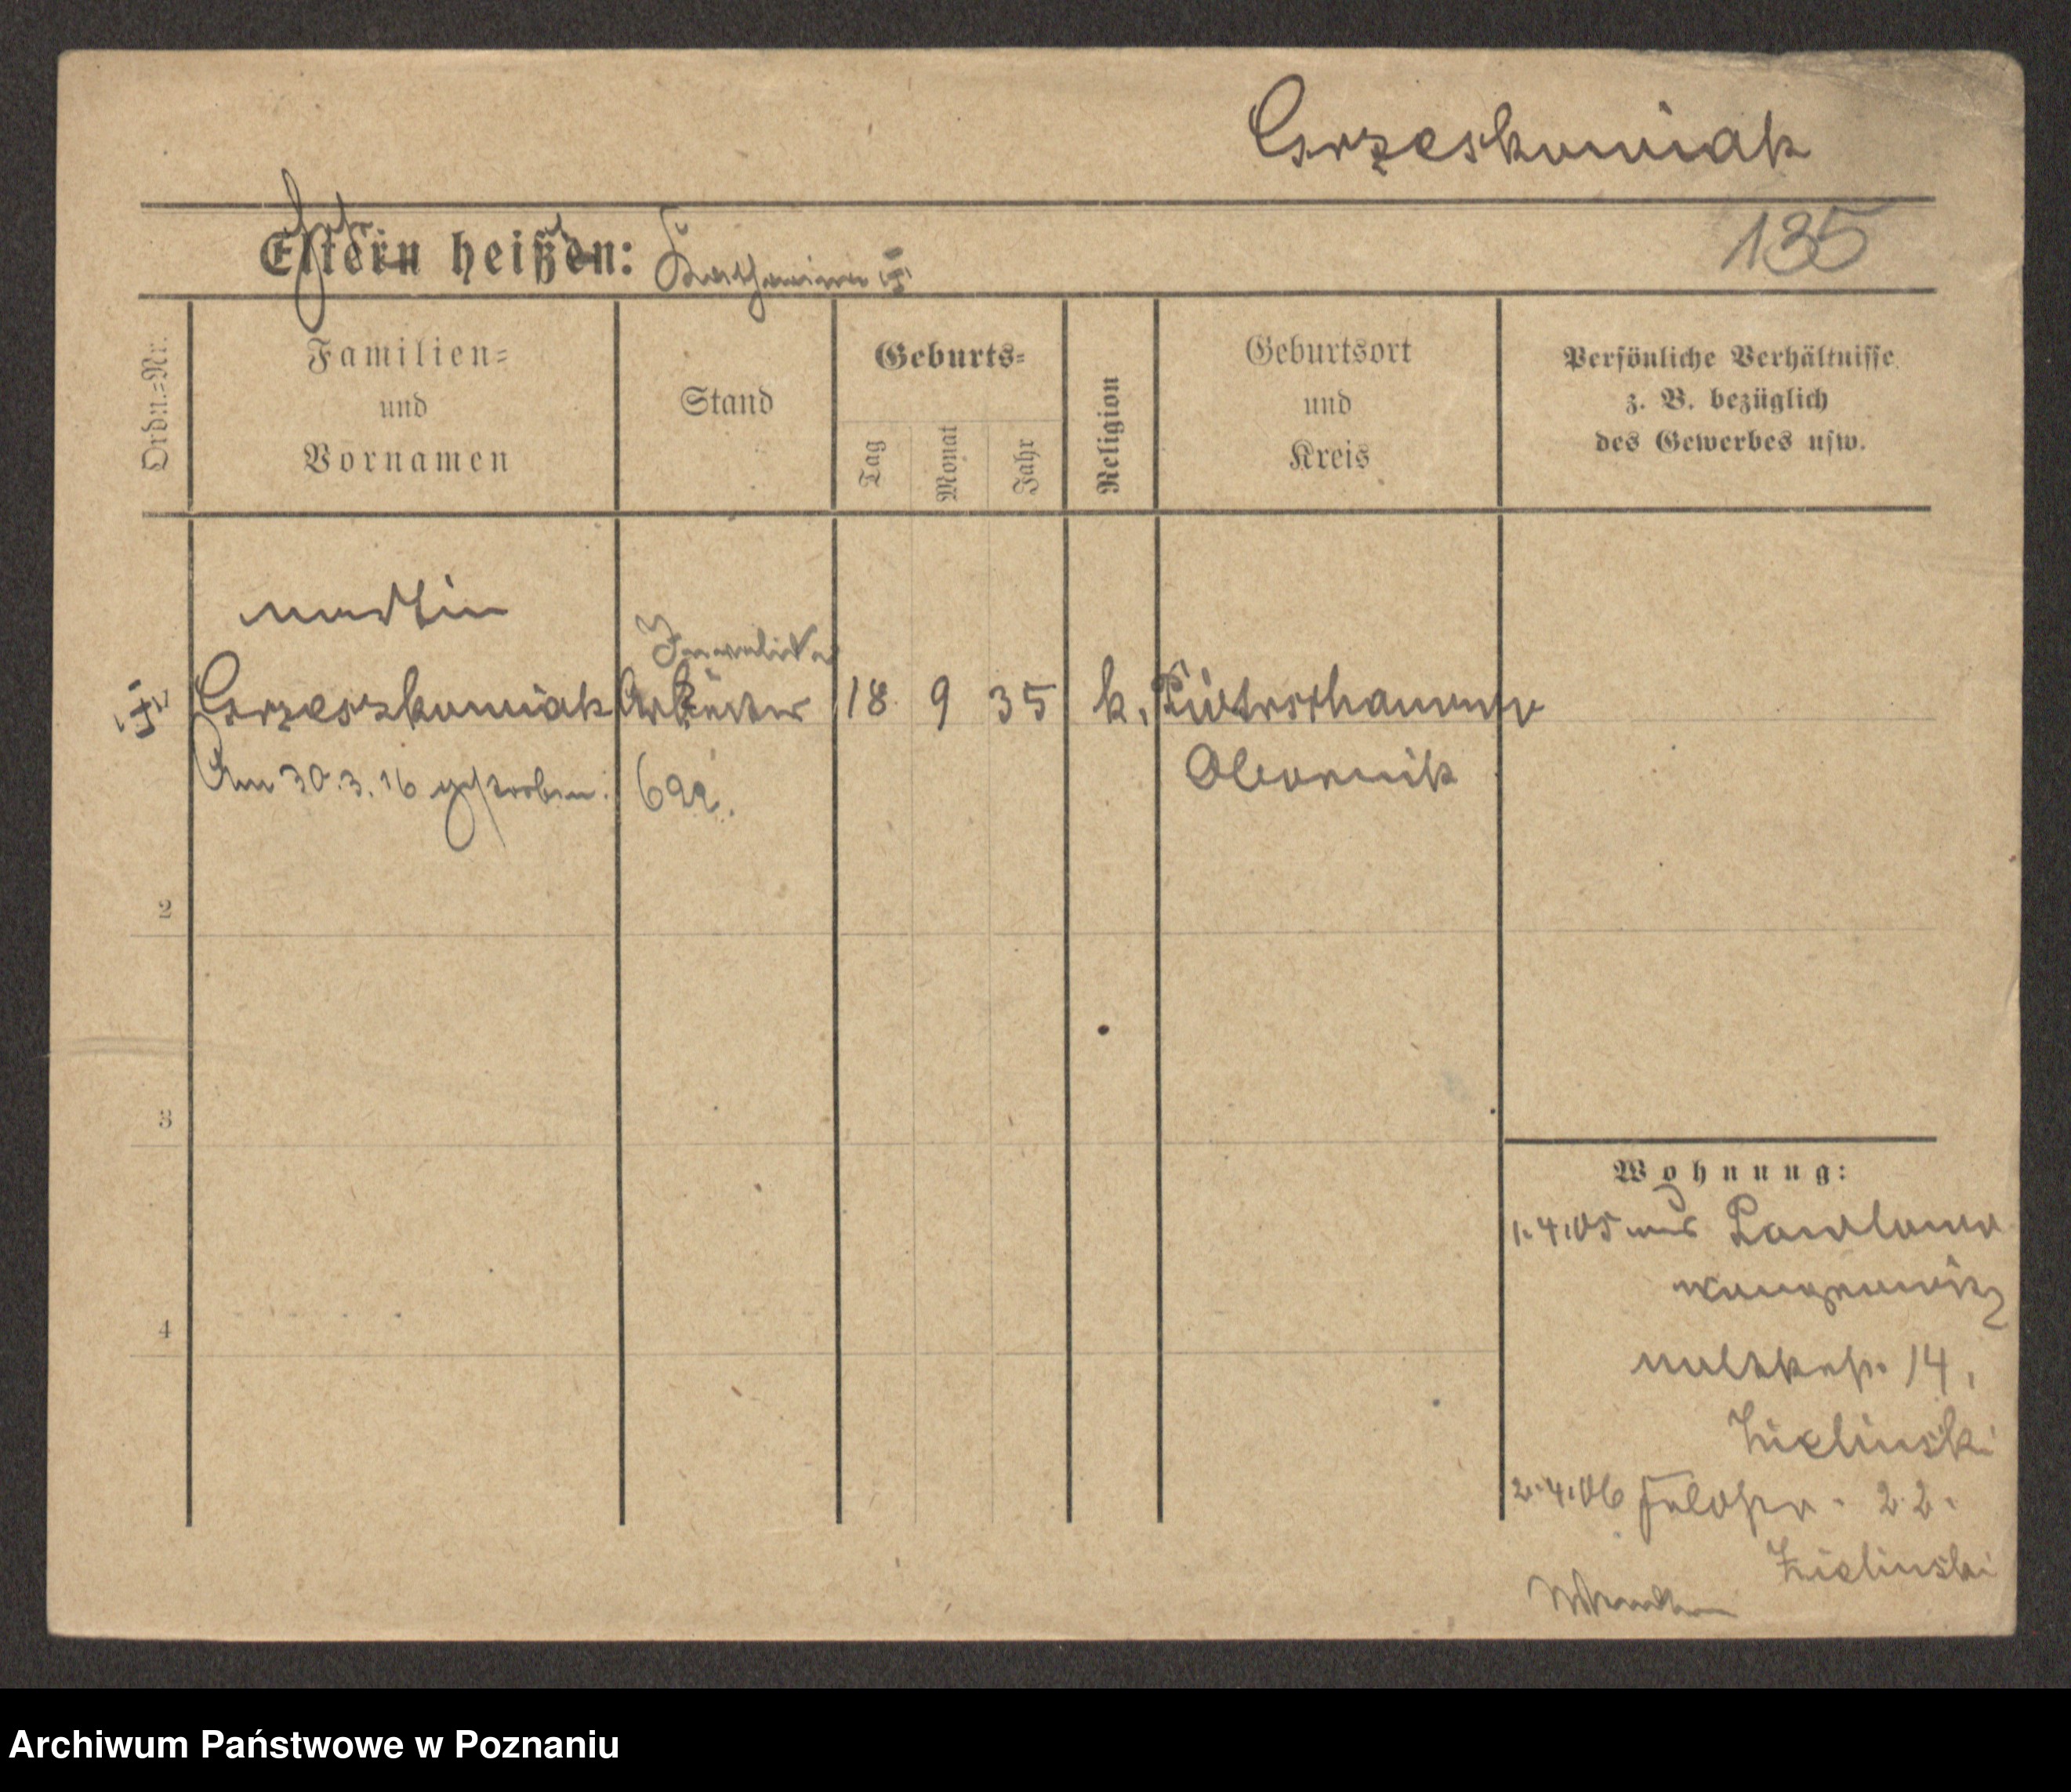 Grzeskowiak
135
Eltern heißen: Katharina
Ordn.=Nr.
Familien=
und
Vornamen
Stand
Geburts=
Tag
Monat
Jahr
Religion
Geburtsort
und
Kreis
Persönliche Verhältnisse
z. B. bezüglich
des Gewerbes usw.
Martin
Invalide
Grzeszkowiak Arbeiter 18 9 35 k.
Obornik
Am 30.3.16 gestorben. 699.
2
3
4
Wohnung:
1.4.05 aus
Wongrowitz
14.
Zielinski
2.4.06 22.
Zielinski
Archiwum Państwowe w Poznaniu